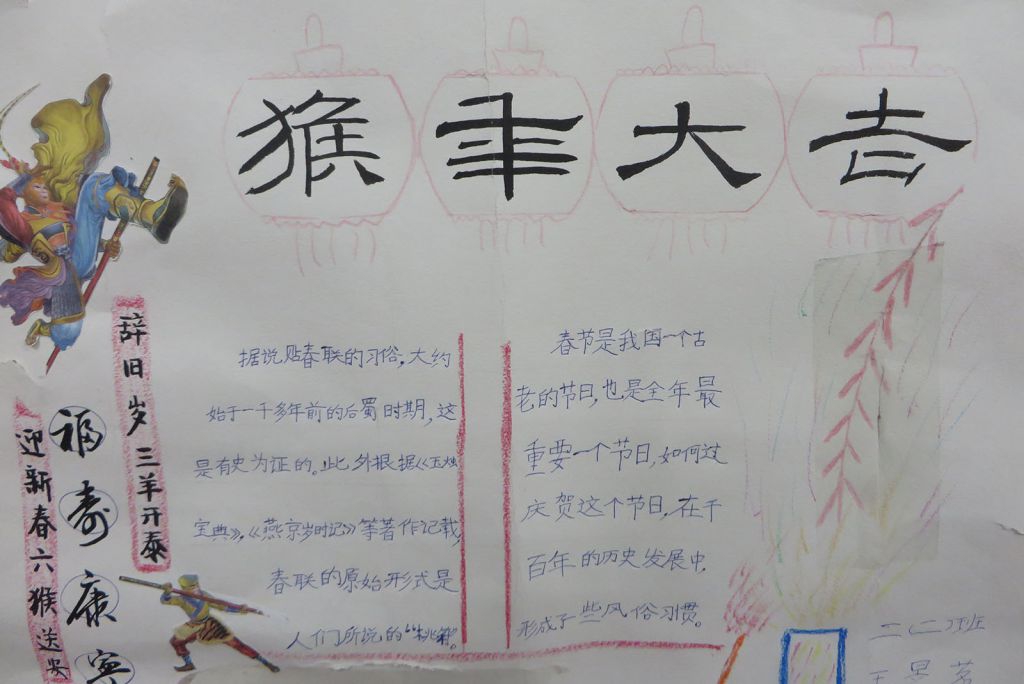 猴年大吉
辞旧岁三羊开泰
迎新春六猴送安
福寿康寧
据说贴春联的习俗,大约
始于一千多年前的后蜀时期,这
是有史为证的。此外根据《玉烛
宝典》,《燕京岁时记》等著作记载,
春联的原始形式是
人们所说的“桃符”。
春节是我国一个古
老的节日,也是全年最
重要一个节日,如何过
庆贺这个节日,在千
百年的历史发展中,
形成了一些风俗习惯。
二(二)班